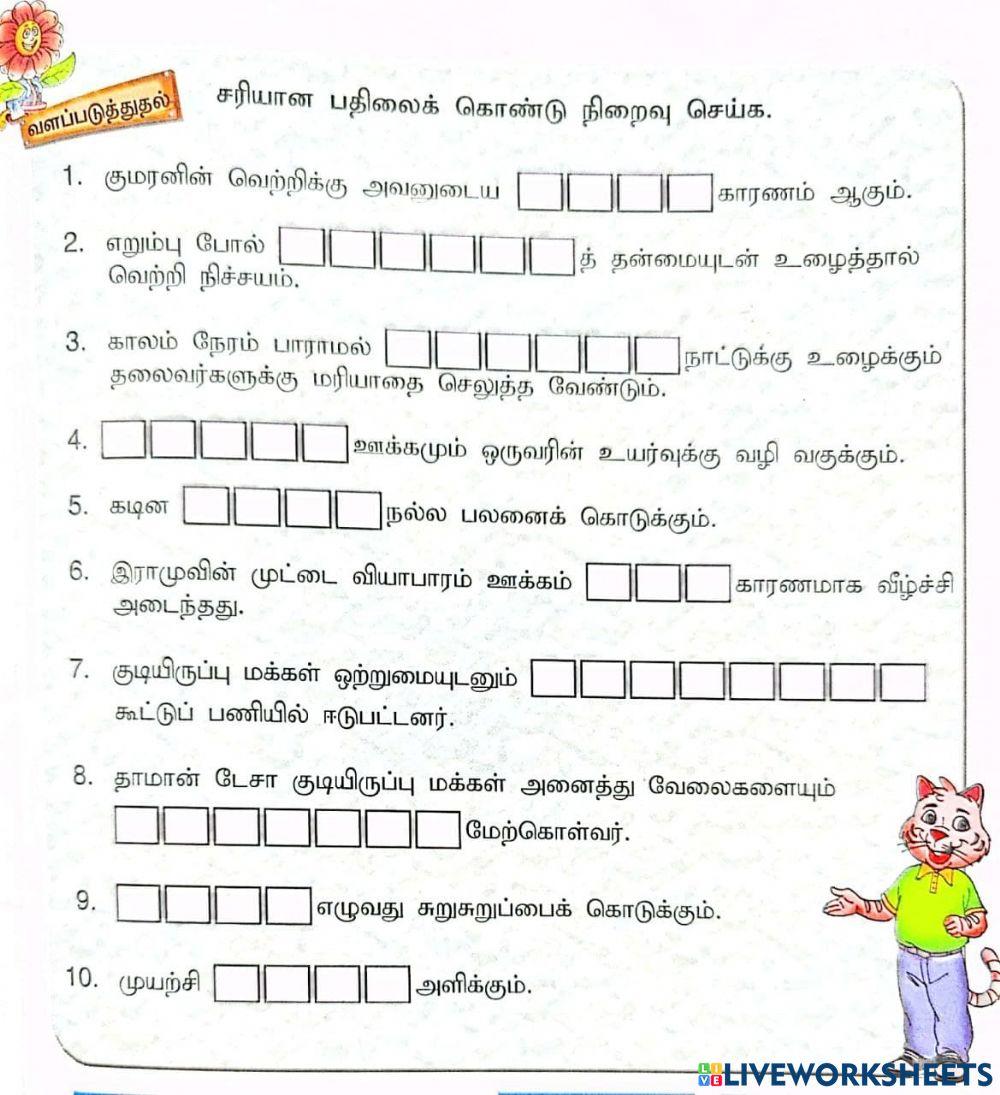 வளப்படுத்துதல்
சரியான பதிலைக் கொண்டு நிறைவு செய்க.
1. குமரனின் வெற்றிக்கு அவனுடைய காரணம் ஆகும்.
2. எறும்பு போல் த் தன்மையுடன் உழைத்தால்
வெற்றி நிச்சயம்.
3. காலம் நேரம் பாராமல் நாட்டுக்கு உழைக்கும்
தலைவர்களுக்கு மரியாதை செலுத்த வேண்டும்.
4. ஊக்கமும் ஒருவரின் உயர்வுக்கு வழி வகுக்கும்.
5. கடின நல்ல பலனைக் கொடுக்கும்.
6. இராமுவின் முட்டை வியாபாரம் ஊக்கம் காரணமாக வீழ்ச்சி
அடைந்தது.
7. குடியிருப்பு மக்கள் ஒற்றுமையுடனும்
கூட்டுப் பணியில் ஈடுபட்டனர்.
8. தாமான் டேசா குடியிருப்பு மக்கள் அனைத்து வேலைகளையும்
மேற்கொள்வர்.
9. எழுவது சுறுசுறுப்பைக் கொடுக்கும்.
10. முயற்சி அளிக்கும்.
LIVE LIVEWORKSHEETS